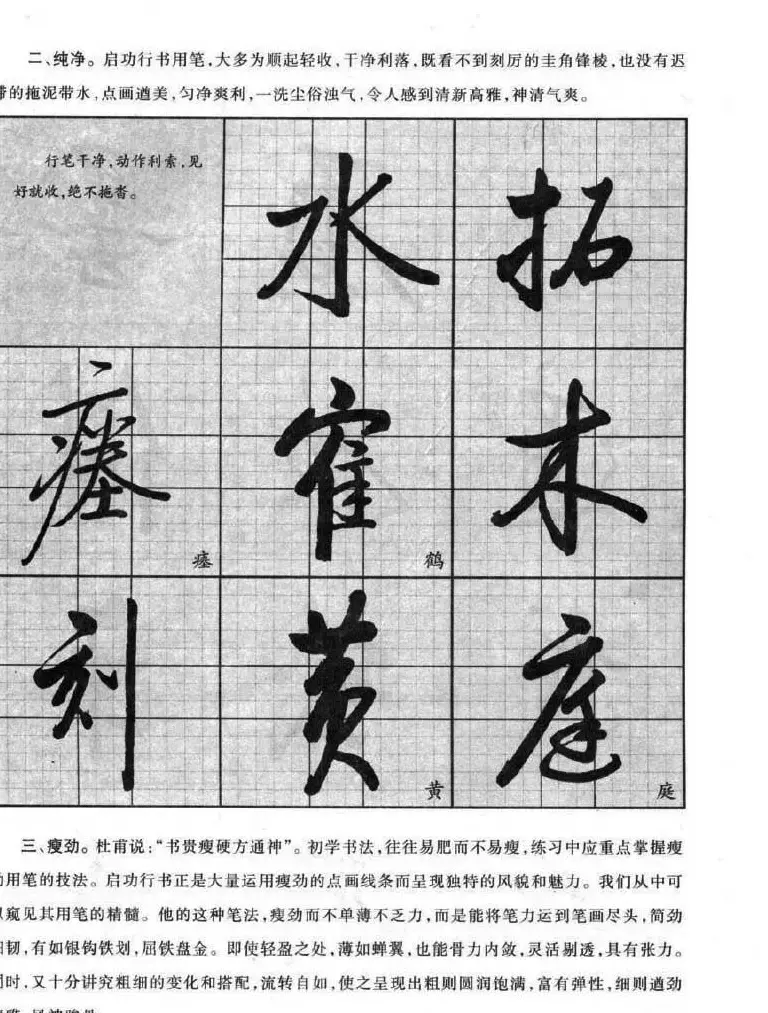 二、纯净。启功行书用笔,大多为顺起轻收,干净利落,既看不到刻厉的圭角锋棱,也没有迟
的拖泥带水,点画遒美,匀净爽利,一洗尘俗浊气,令人感到清新高雅,神清气爽。
行笔干净,动作利索,见
好就收,绝不拖沓。
水 拓
木
鹤
瘗
刻 黄 庭
三、瘦劲。杜甫说:“书贵瘦硬方通神”。初学书法,往往易肥而不易瘦,练习中应重点掌握瘦
用笔的技法。启功行书正是大量运用瘦劲的点画线条而呈现独特的风貌和魅力。我们从中可
窥见其用笔的精髓。他的这种笔法,瘦劲而不单薄不乏力,而是能将笔力运到笔画尽头,简劲
韧,有如银钩铁划,屈铁盘金。即使轻盈之处,薄如蝉翼,也能骨力内敛,灵活剔透,具有张力。
时,又十分讲究粗细的变化和搭配,流转自如,使之呈现出粗则圆润饱满,富有弹性,细则遒劲